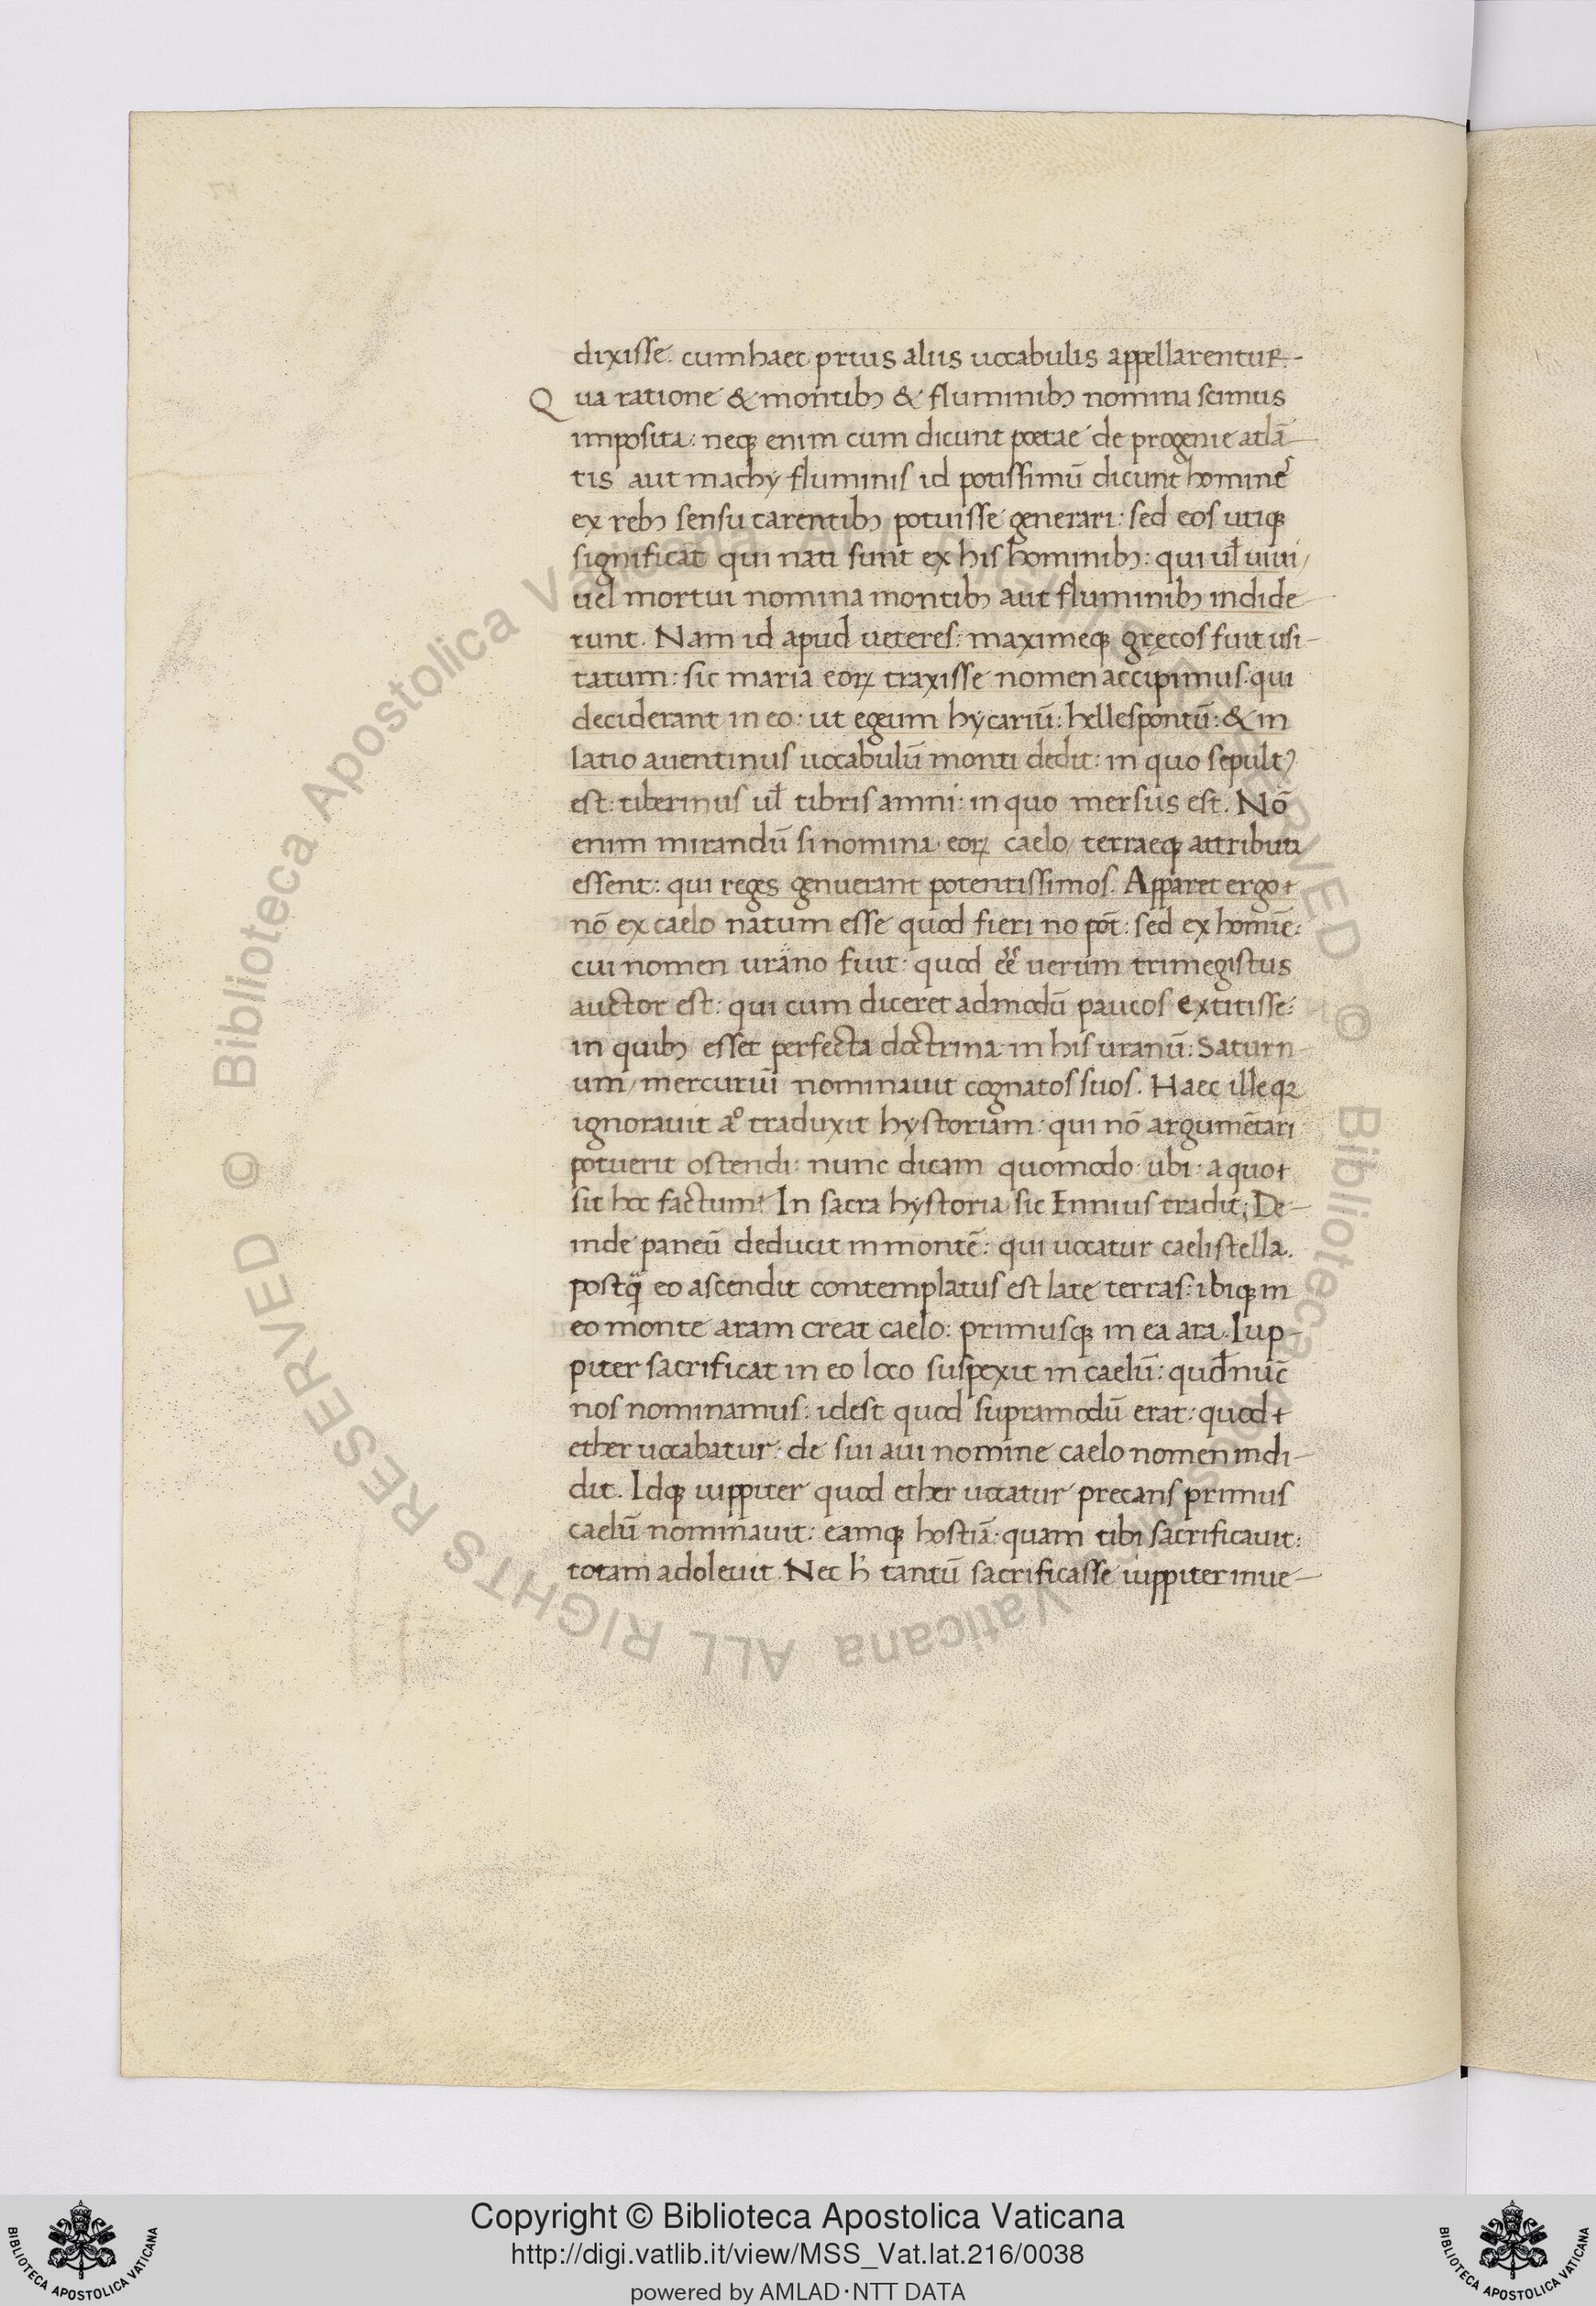 dixisse. cum haec prius aliis uocabulis appellarentur.
Qua ratione & montibꝫ & fluminibꝫ nomina scimus
imposita: neqꝫ enim cum dicunt poetae de progenie atlā-
tis aut machy fluminis id potissimū dicunt homines
ex rebꝫ sensu carentibꝫ potuisse generari: sed eos utiqꝫ
significāt qui nati sunt ex his hominibꝫ: qui uł uiui/
uel mortui nomina montibꝫ aut fluminibꝫ indide-
runt. Nam id apud ueteres: maximeqꝫ gręcos fuit usi-
tatum: sic maria eoꝝ traxisse nomen accipimus: qui
deciderant in eo: ut egeum hycariū: hellespontū: & in
latio auentinus uocabulū monti dedit: in quo sepultꝰ
est: tiberinus uł tibris amni: in quo mersus est. Nō
enim mirandū si nomina eoꝝ caelo/ terraeqꝫ attributa
essent: qui reges genuerant potentissimos. Apparet ergo
nō ex caelo natum esse quod fieri no pōt: sed ex homīe:
cui nomen urano fuit: quod eē uerum trimegistus
auctor est: qui cum diceret admodū paucos extitisse:
in quibꝫ esset perfecta doctrina in his uranū: Saturn-
um/ mercuriū nominauit cognatos suos. Haec ille qꝫ
ignorauit aº traduxit hystoriam: qui nō argumētari
potuerit ostendi: nunc dicam quomodo: ubi: a quo
sit hoc factum? In sacra hystoria sic Ennius tradit; De-
inde paneū deducit in montē: qui uocatur caeli stella.
postq̄ eo ascendit contemplatus est late terras: ibiqꝫ in
eo monte aram creat caelo: primusqꝫ in ea ara Iup-
piter sacrificat in eo loco suspexit in caelū: qud nūc
nos nominamus: idest quod supramodū erat: quod
ether uocabatur: de sui aui nomine caelo nomen indi-
dit. Idqꝫ iuppiter quod ether uocatur precans primus
caelū nominauit: eamqꝫ hostiā: quam tibi sacrificauit:
totam adoleuit. Nec h̓ tantū sacrificasse iuppiter inue-
Copyright © Biblioteca Apostolica Vaticana
http://digi.vatlib.it/view/MSS_Vat.lat.216/0038
powered by AMLAD·NTT DATA
BIBLIOTECA APOSTOLICA VATICANA
BIBLIOTECA APOSTOLICA VATICANA
© Biblioteca Apostolica Vaticana ALL RIGHTS RESERVED © Biblioteca Apostolica Vaticana ALL RIGHTS RESERVED